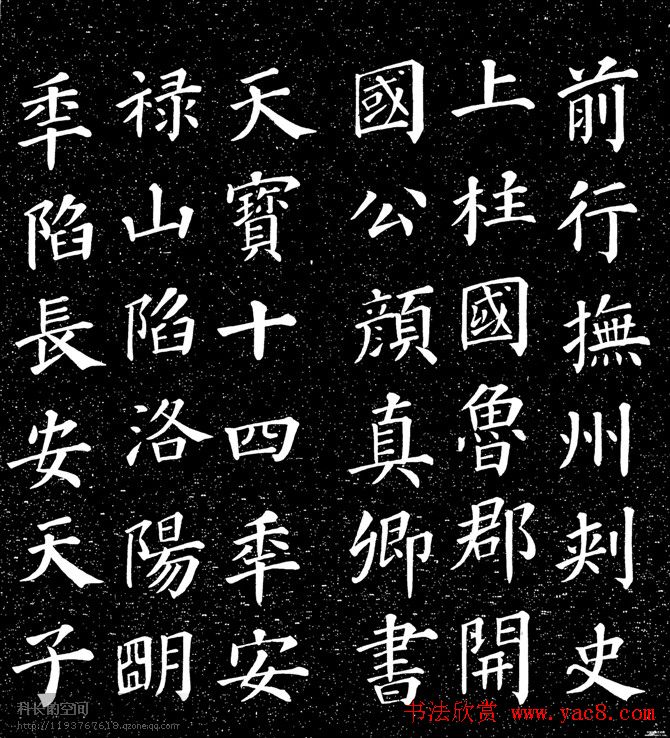 前行撫州刾史
上柱國魯郡開
國公顔真卿書
天寶十四秊安
禄山陷洛陽朙
秊陷長安天子
科长的空间
http://1193767618.qzone.qq.com
书法欣赏 www.yac8.com